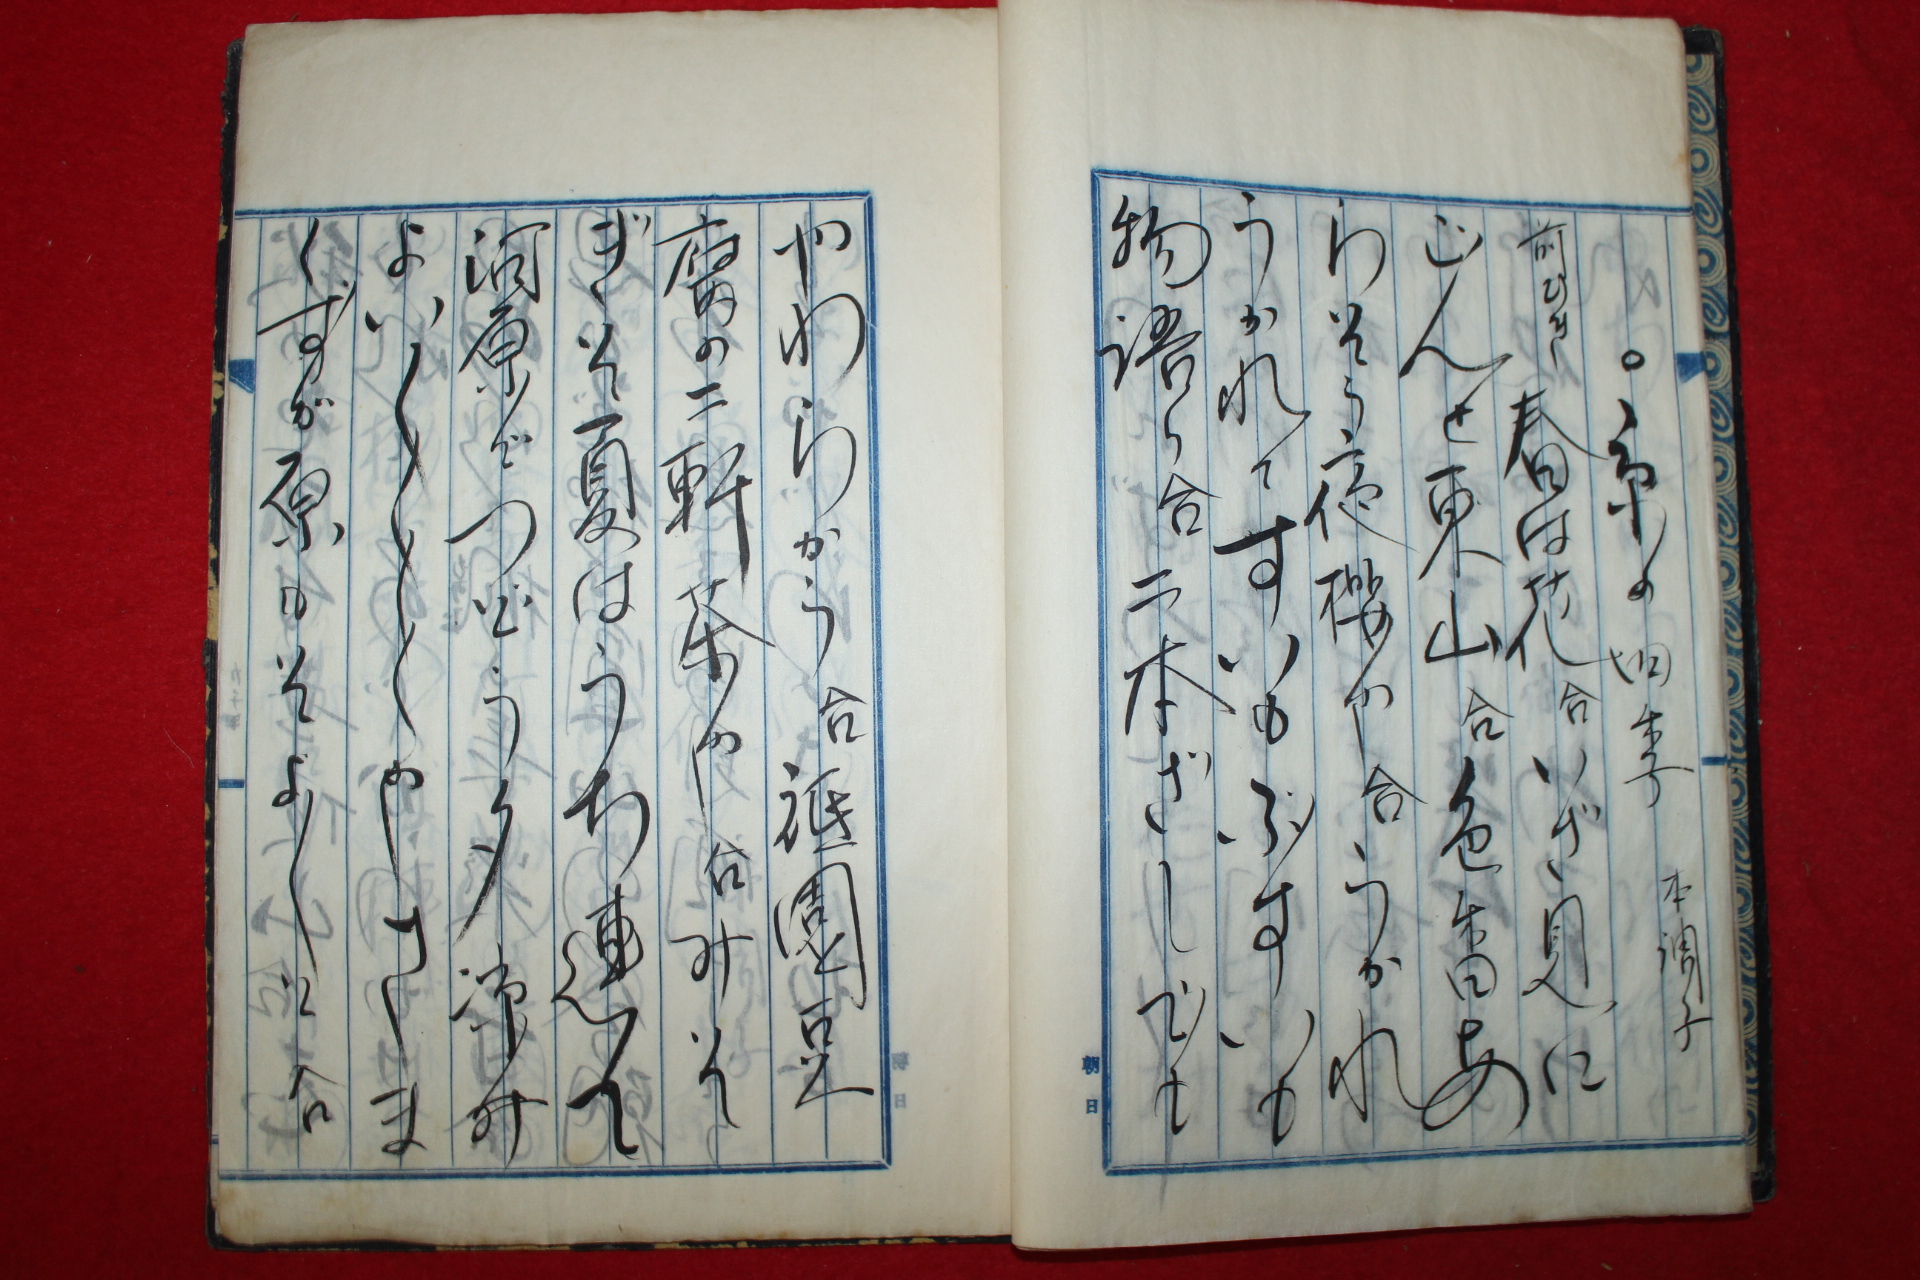 ○京の四季 本調子
前びき 春は花 合 いざ見に
ごんせ東山 合 色香あ
らそう夜桜や 合 うかれ
うかれてすいもぶすいも
物語り 合 二本ざしでも
やわらかう 合 祇園豆
腐の二軒茶や 合 みそ
ぎそ夏はうち連れて
河原でつどう夕涼み
よい〳〵〳〵〳〵やさ ま
くずが原にそよ〳〵と 合
朝日